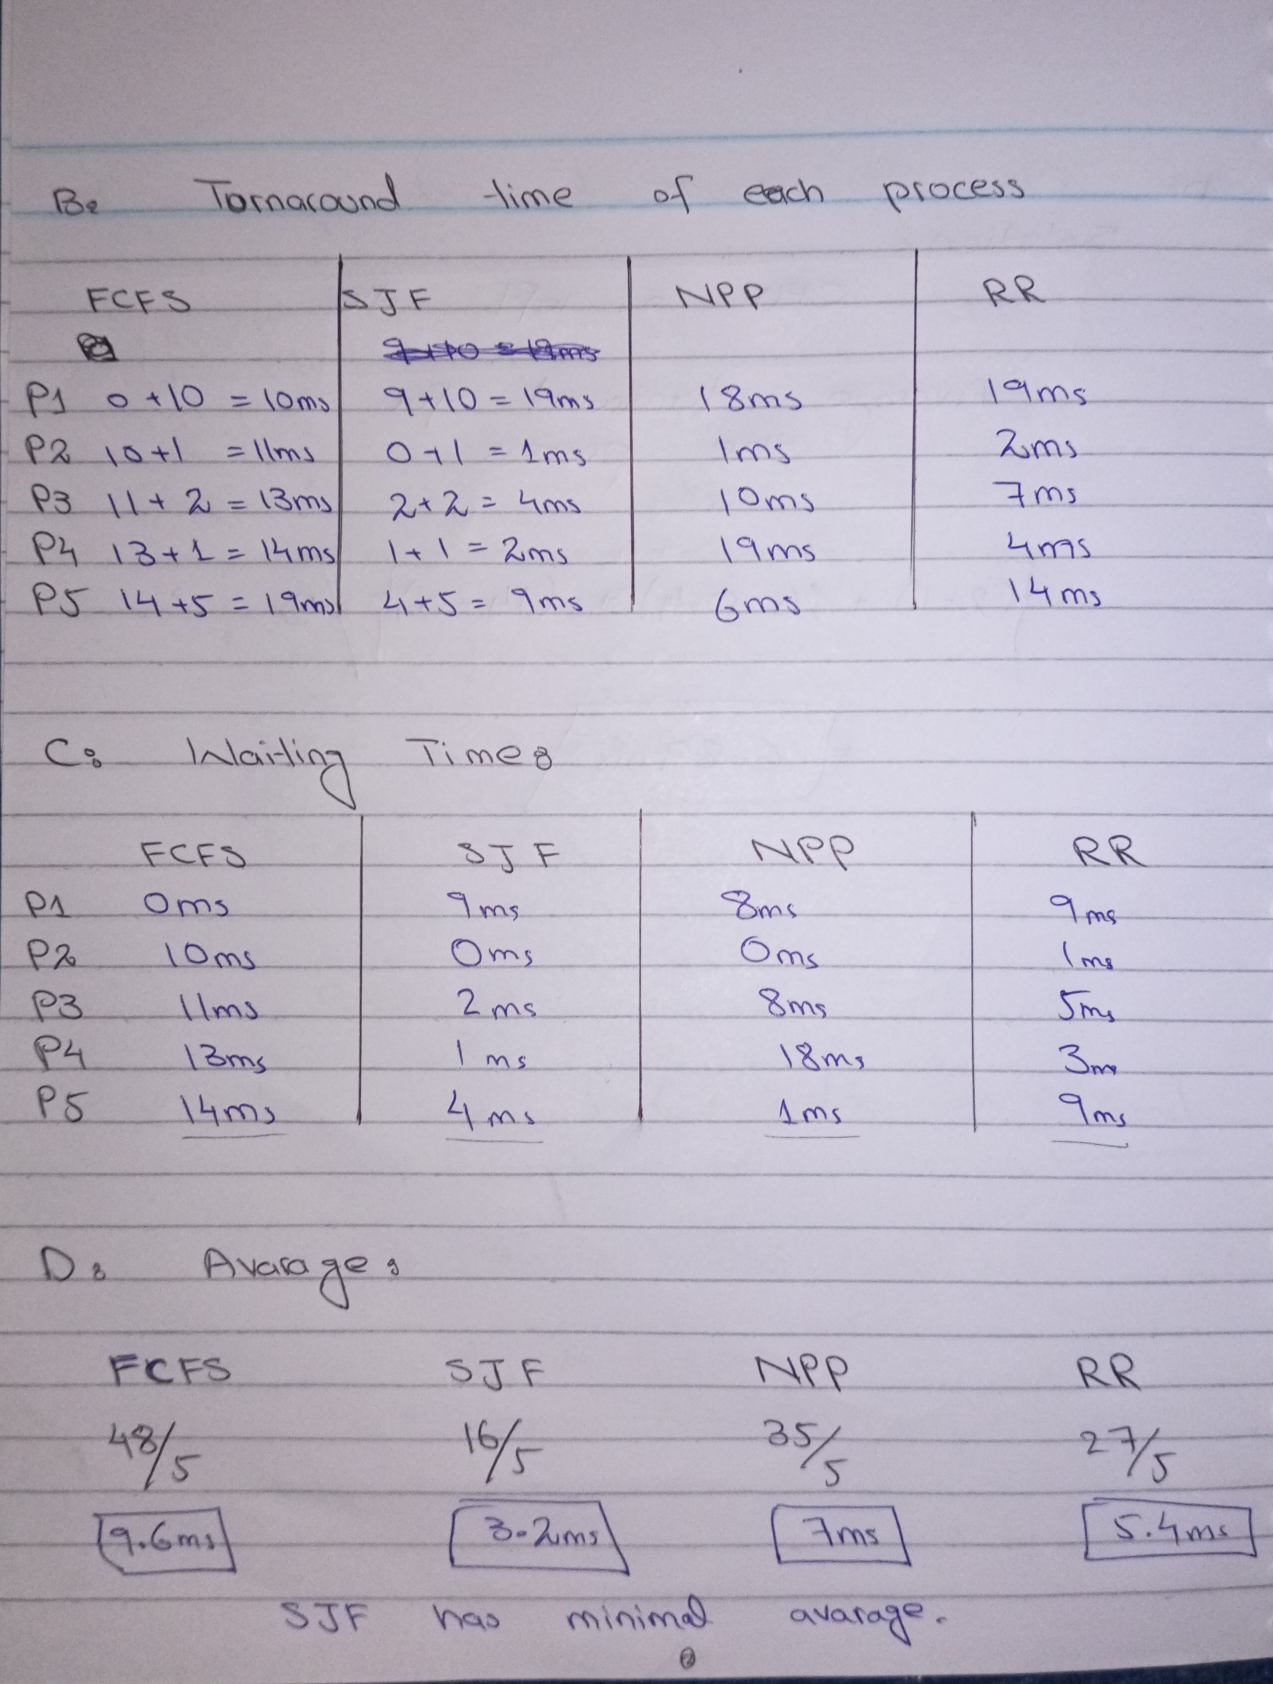 B: Tornaround time of each process
FCFS SJF NPP RR
P1 0+10 = 10ms 9+10 = 19ms 18ms 19ms
P2 10+1 = 11ms 0+1 = 1ms 1ms 2ms
P3 11+2 = 13ms 2+2 = 4ms 10ms 7ms
P4 13+1 = 14ms 1+1 = 2ms 19ms 4ms
P5 14+5 = 19ms 4+5 = 9ms 6ms 14ms
C: Waiting Time:
FCFS SJF NPP RR
P1 0ms 9ms 8ms 9ms
P2 10ms 0ms 0ms 1ms
P3 11ms 2ms 8ms 5ms
P4 13ms 1ms 18ms 3m
P5 14ms 4ms 1ms 9ms
D: Avarage:
FCFS SJF NPP RR
48/5 16/5 35/5 27/5
9.6ms 3.2ms 7ms 5.4ms
SJF has minimal avarage.